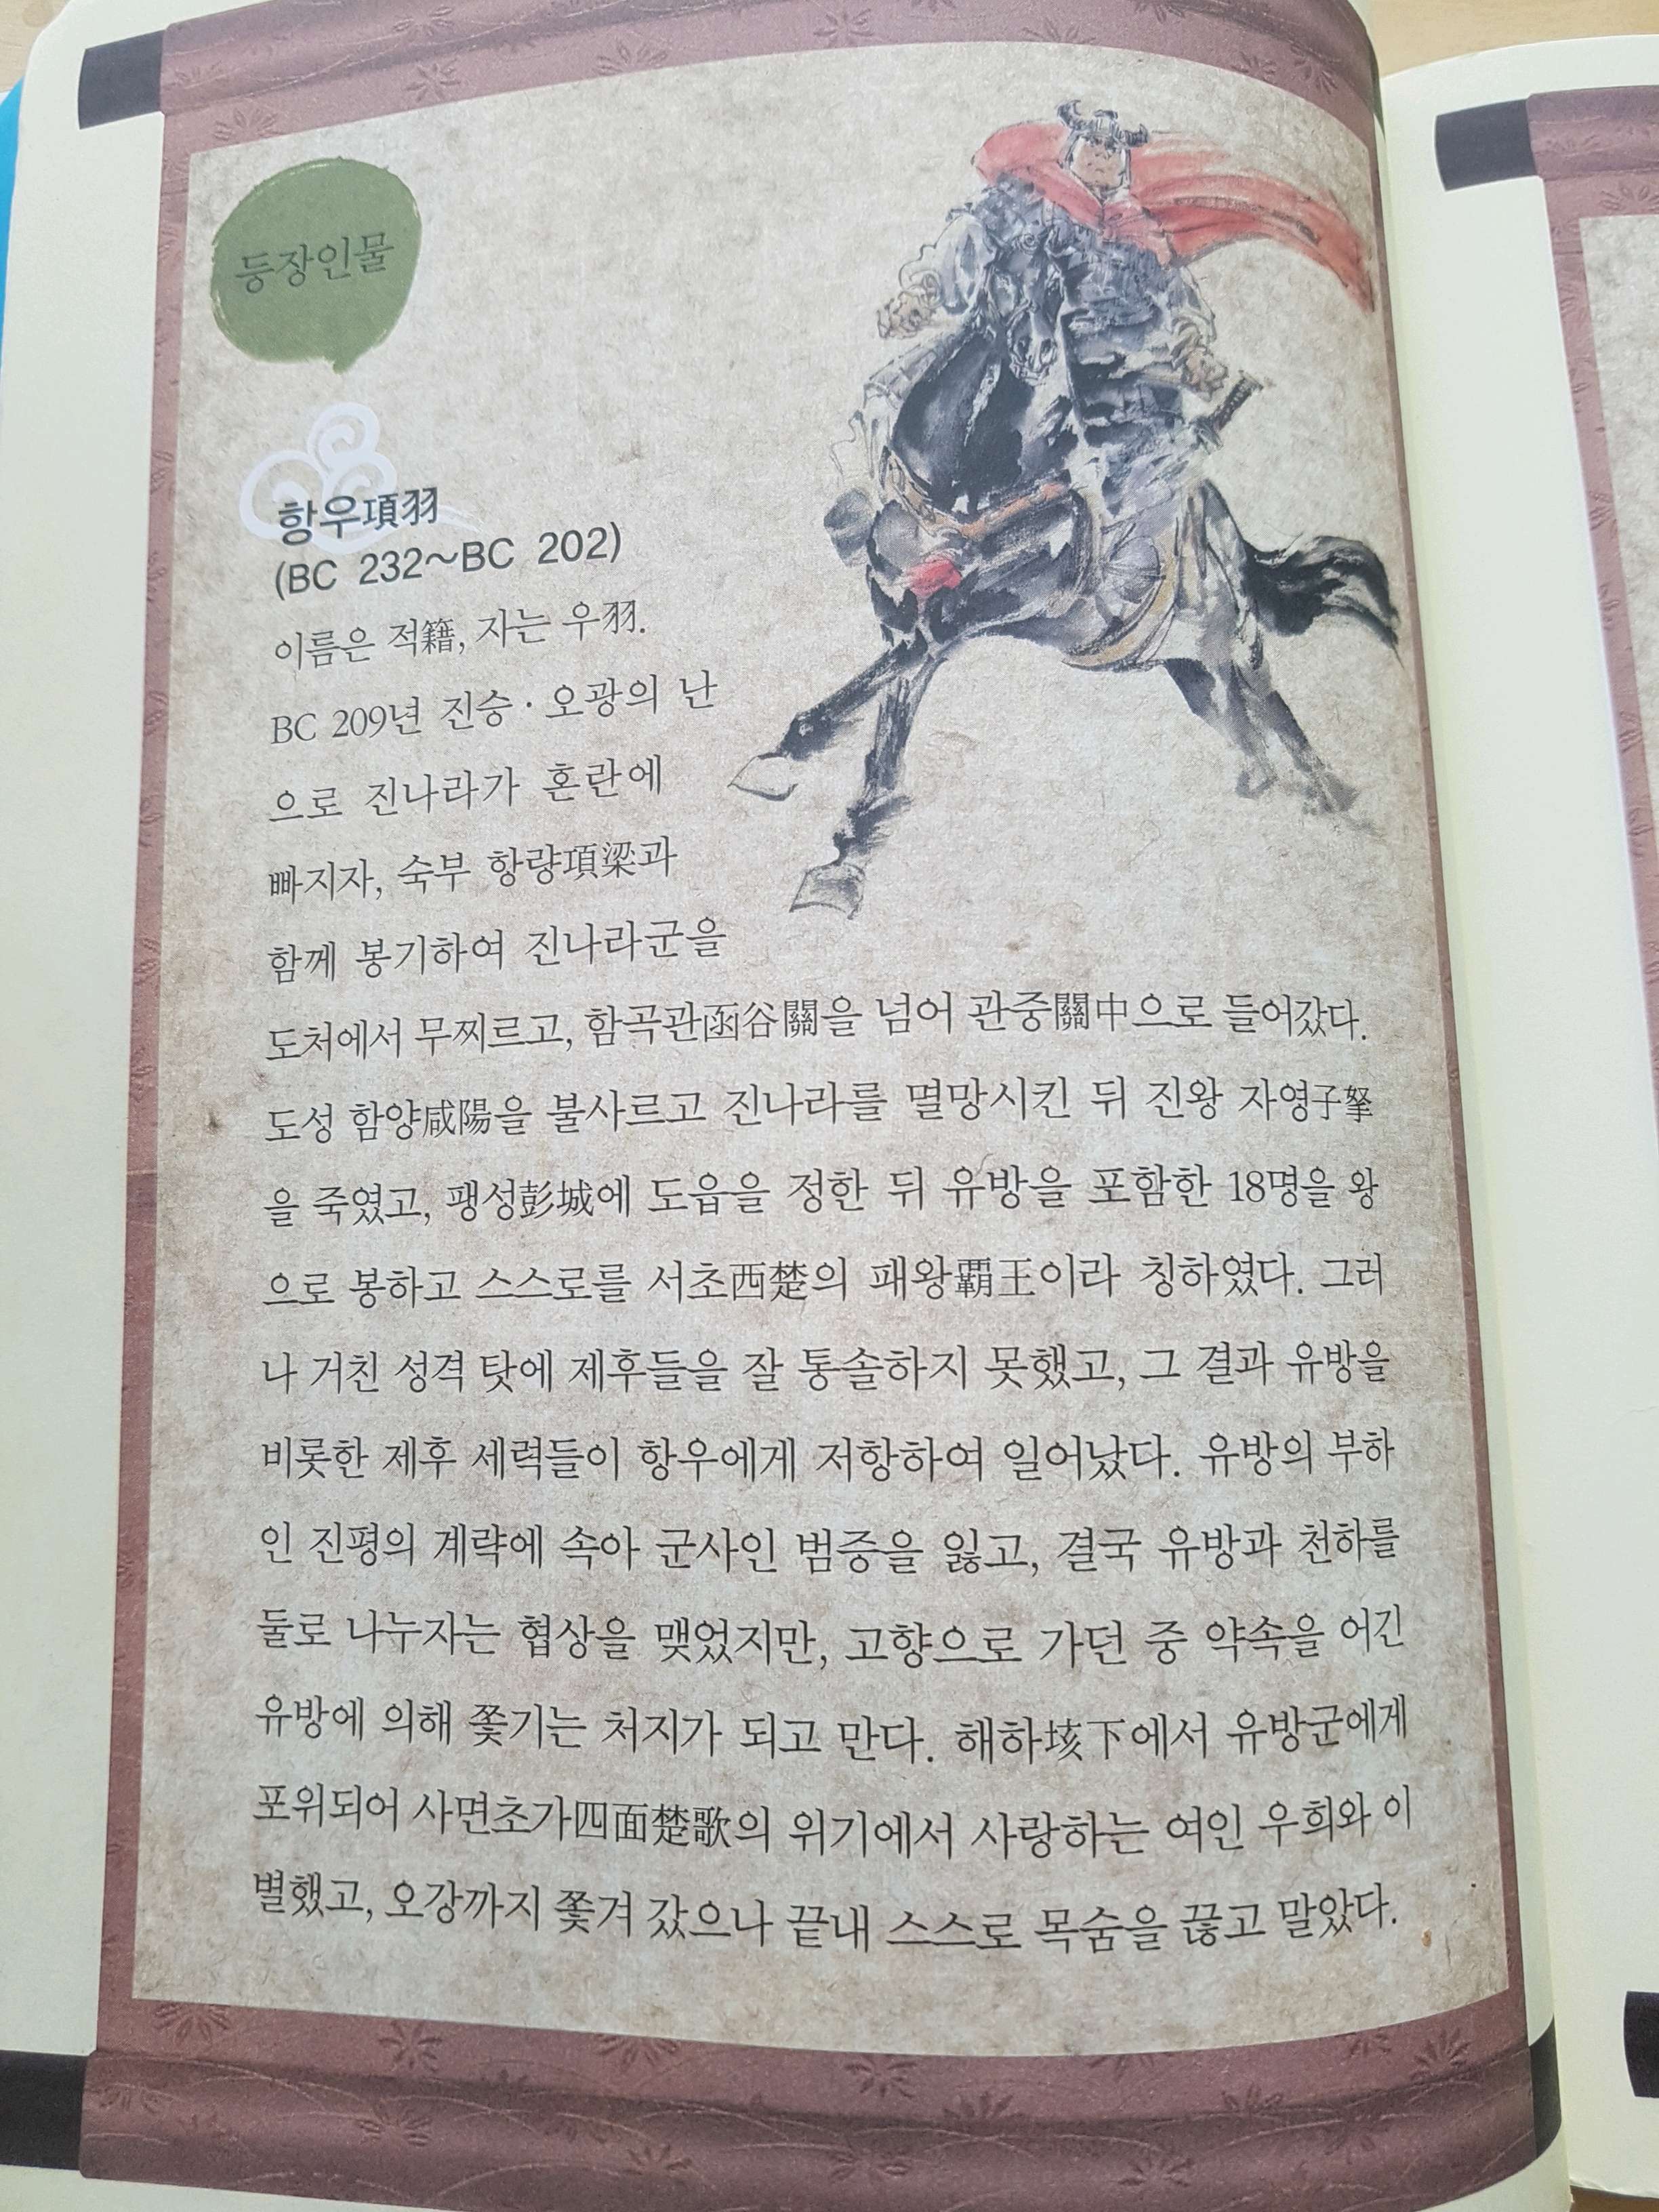 등장인물
항우項羽
(BC 232~BC 202)
이름은 적籍, 자는 우羽.
BC 209년 진승·오광의 난
으로 진나라가 혼란에
빠지자, 숙부 항량項梁과
함께 봉기하여 진나라군을
도처에서 무찌르고, 함곡관函谷關을 넘어 관중關中으로 들어갔다.
도성 함양咸陽을 불사르고 진나라를 멸망시킨 뒤 진왕 자영
을 죽였고, 팽성彭城에 도읍을 정한 뒤 유방을 포함한 18명을 왕
으로 봉하고 스스로를 서초西楚의 패왕覇王이라 칭하였다. 그러
나 거친 성격 탓에 제후들을 잘 통솔하지 못했고, 그 결과 유방을
비롯한 제후 세력들이 항우에게 저항하여 일어났다. 유방의 부하
인 진평의 계략에 속아 군사인 범증을 잃고, 결국 유방과 천하를
둘로 나누자는 협상을 맺었지만, 고향으로 가던 중 약속을 어긴
유방에 의해 쫓기는 처지가 되고 만다. 해하垓下에서 유방군에게
포위되어 사면초가四面楚歌의 위기에서 사랑하는 여인 우희와 이
별했고, 오강까지 쫓겨 갔으나 끝내 스스로 목숨을 끊고 말았다.